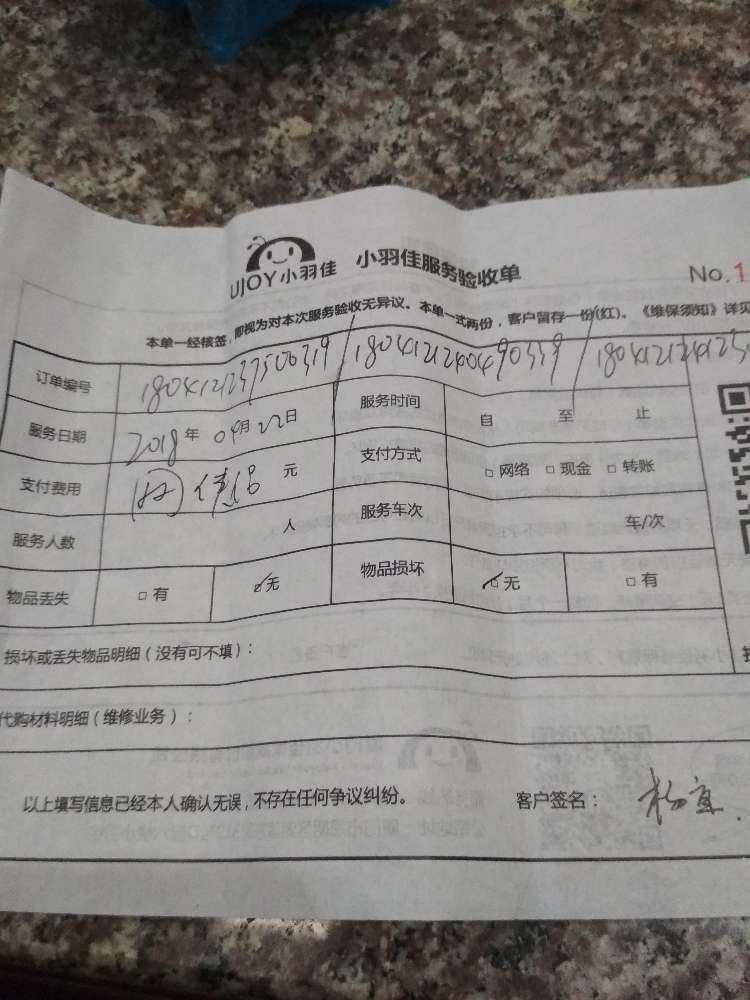 UJOY小羽佳 小羽佳服务验收单
No.1
本单一经核签,即视为对本次服务验收无异议。本单一式两份,客户留存一份(红)。《维保须知》详见
订单编号 1804121237506319 / 1804121240490339 / 180412124123
服务日期 2018年04月22日 服务时间 自 至 止
支付费用 元 支付方式 □网络 □现金 □转账
服务人数 人 服务车次 车/次
物品丢失 □有 ☑无 物品损坏 ☑无 □有
损坏或丢失物品明细(没有可不填):
代购材料明细(维修业务):
以上填写信息已经本人确认无误,不存在任何争议纠纷。 客户签名: